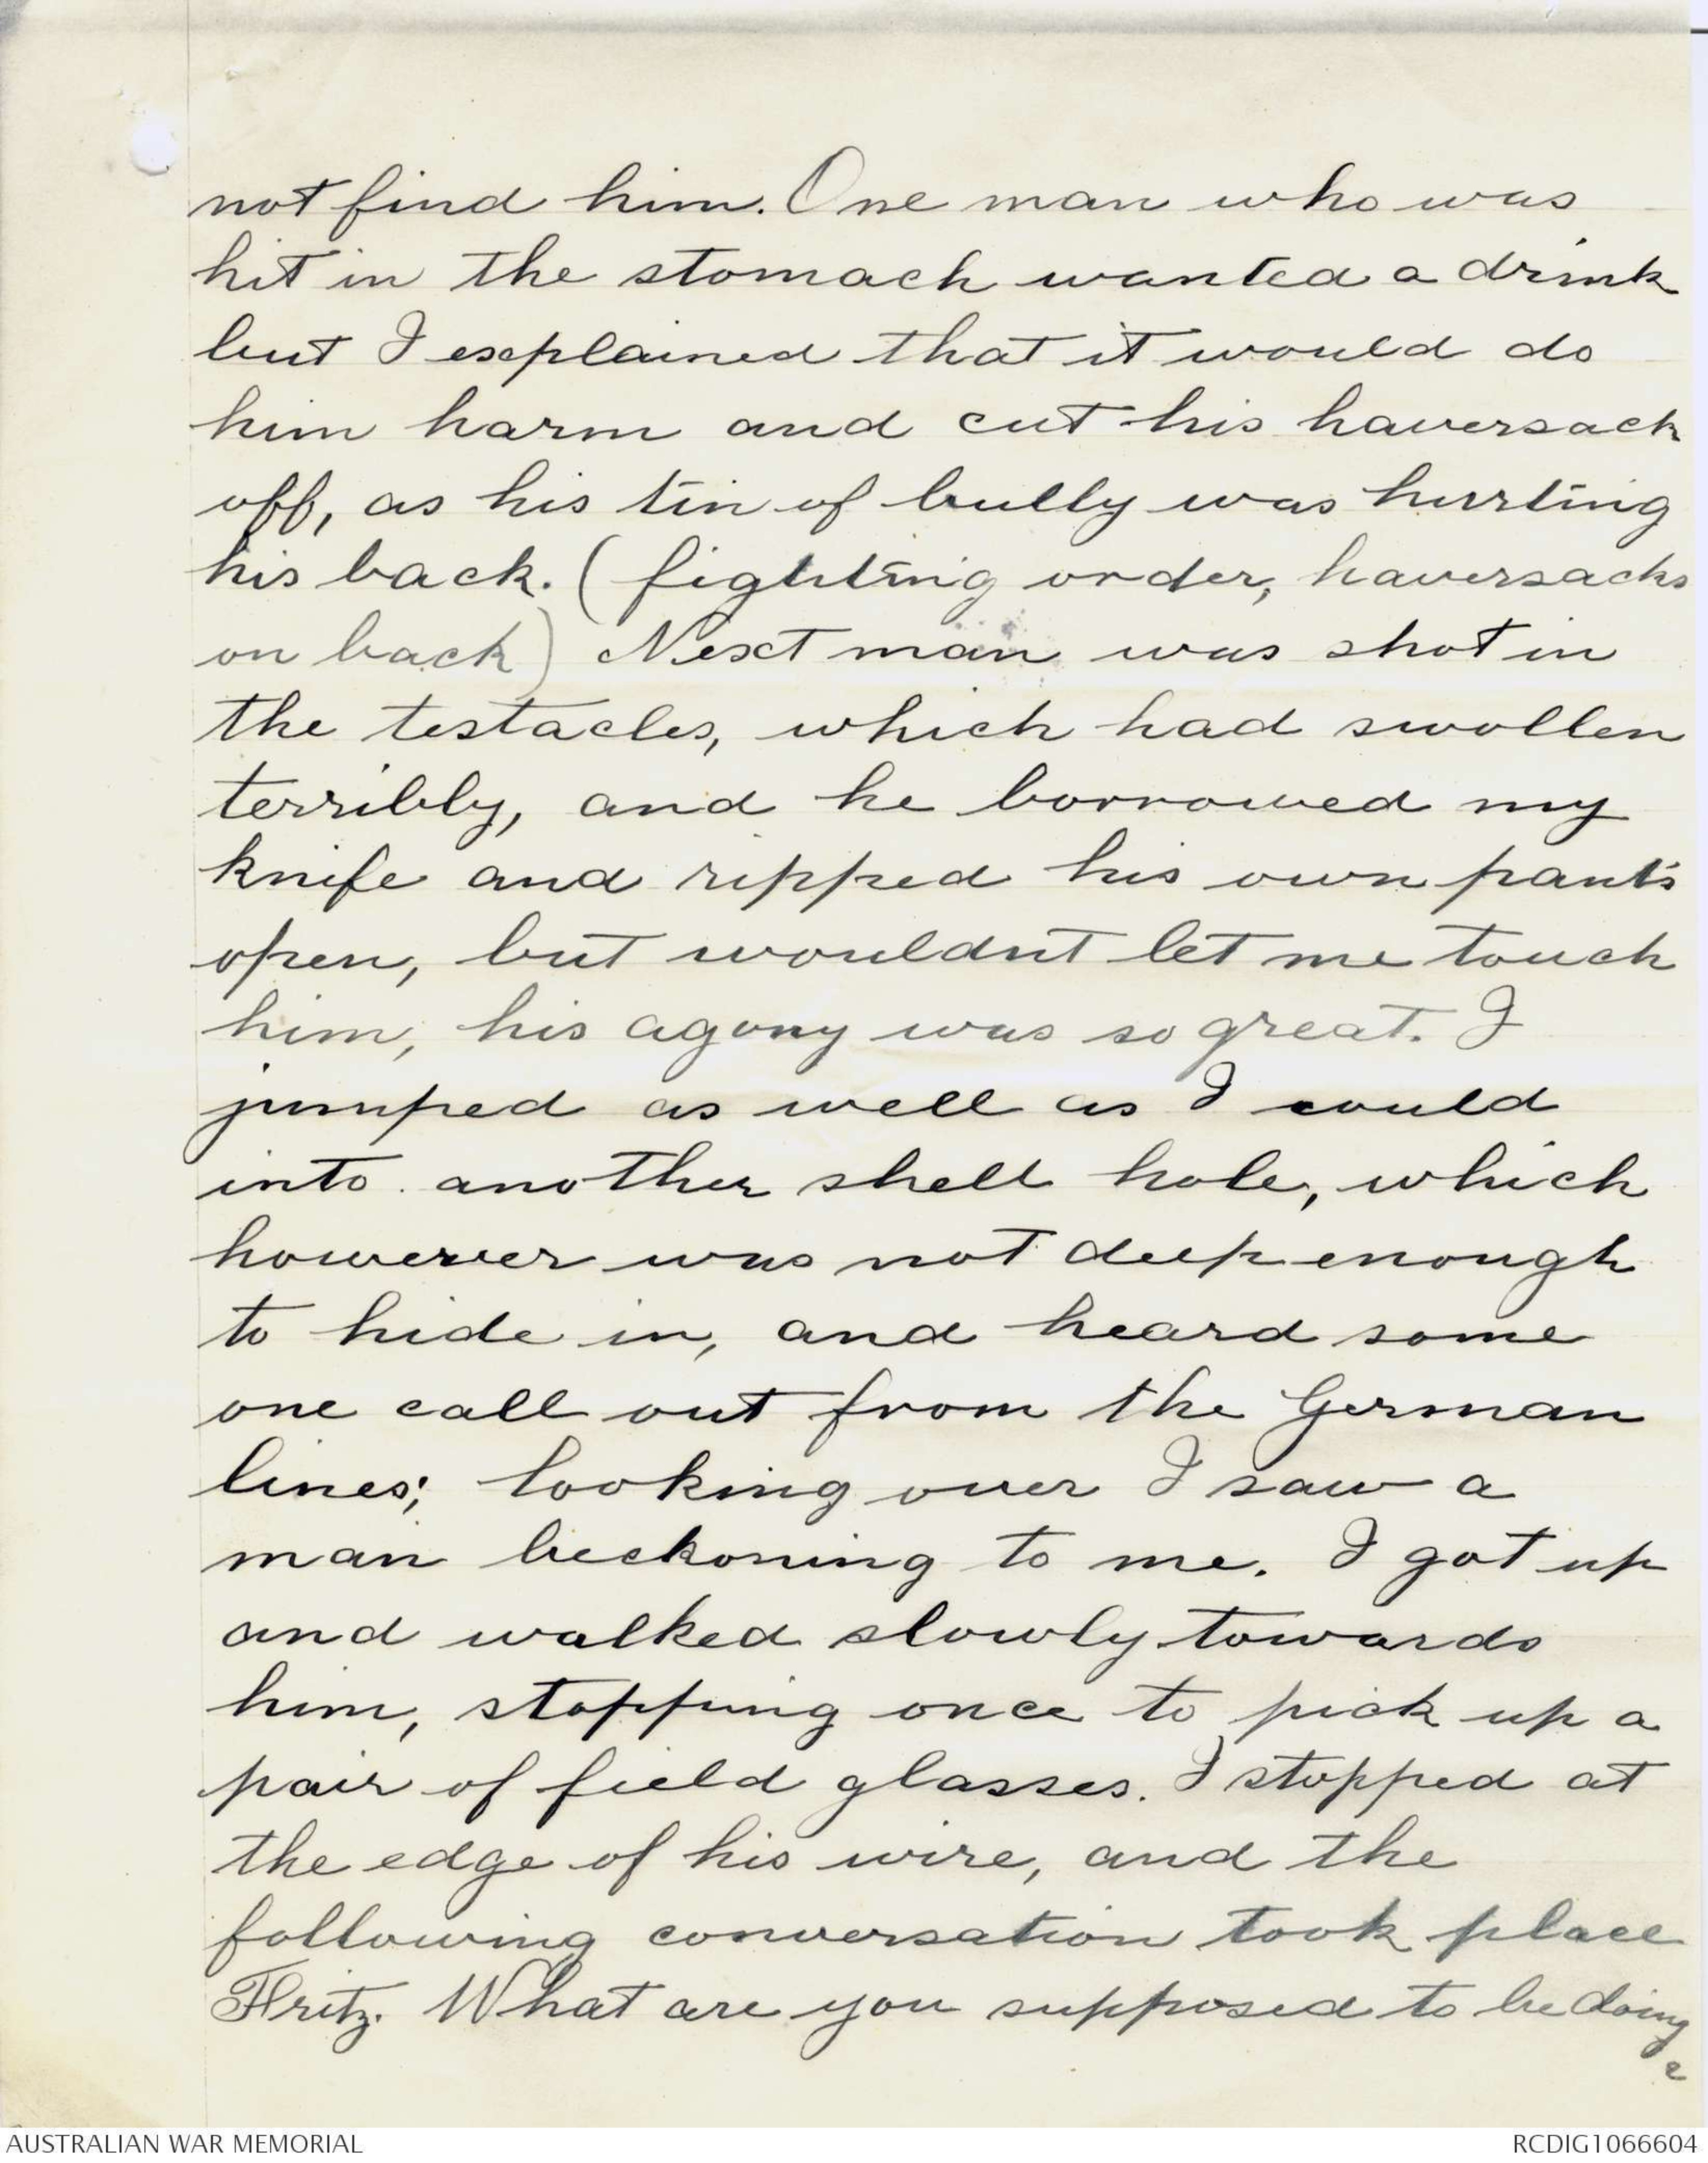 not find him. One man who was
hit in the stomach wanted a drink
but I explained that it would do
him harm and cut his haversack
off, as his tin of bully was hurting
his back. (fighting order, haversacks
on back) Next man was shot in
the testacles, which had swollen
terribly, and he borrowed my
knife and ripped his own pants
open, but wouldnt let me touch
him, his agony was so great. I
jumped as well as I could
into another shell hole, which
however was not deep enough
to hide in, and heard some
one call out from the German
lines; looking over I saw a
man beckoning to me. I got up
and walked slowly towards
him, stopping once to pick up a
pair of field glasses. I stopped at
the edge of his wire, and the
following conversation took place
Fritz. What are you supposed to be doing
?
AUSTRALIAN WAR MEMORIAL
RCDIG1066604